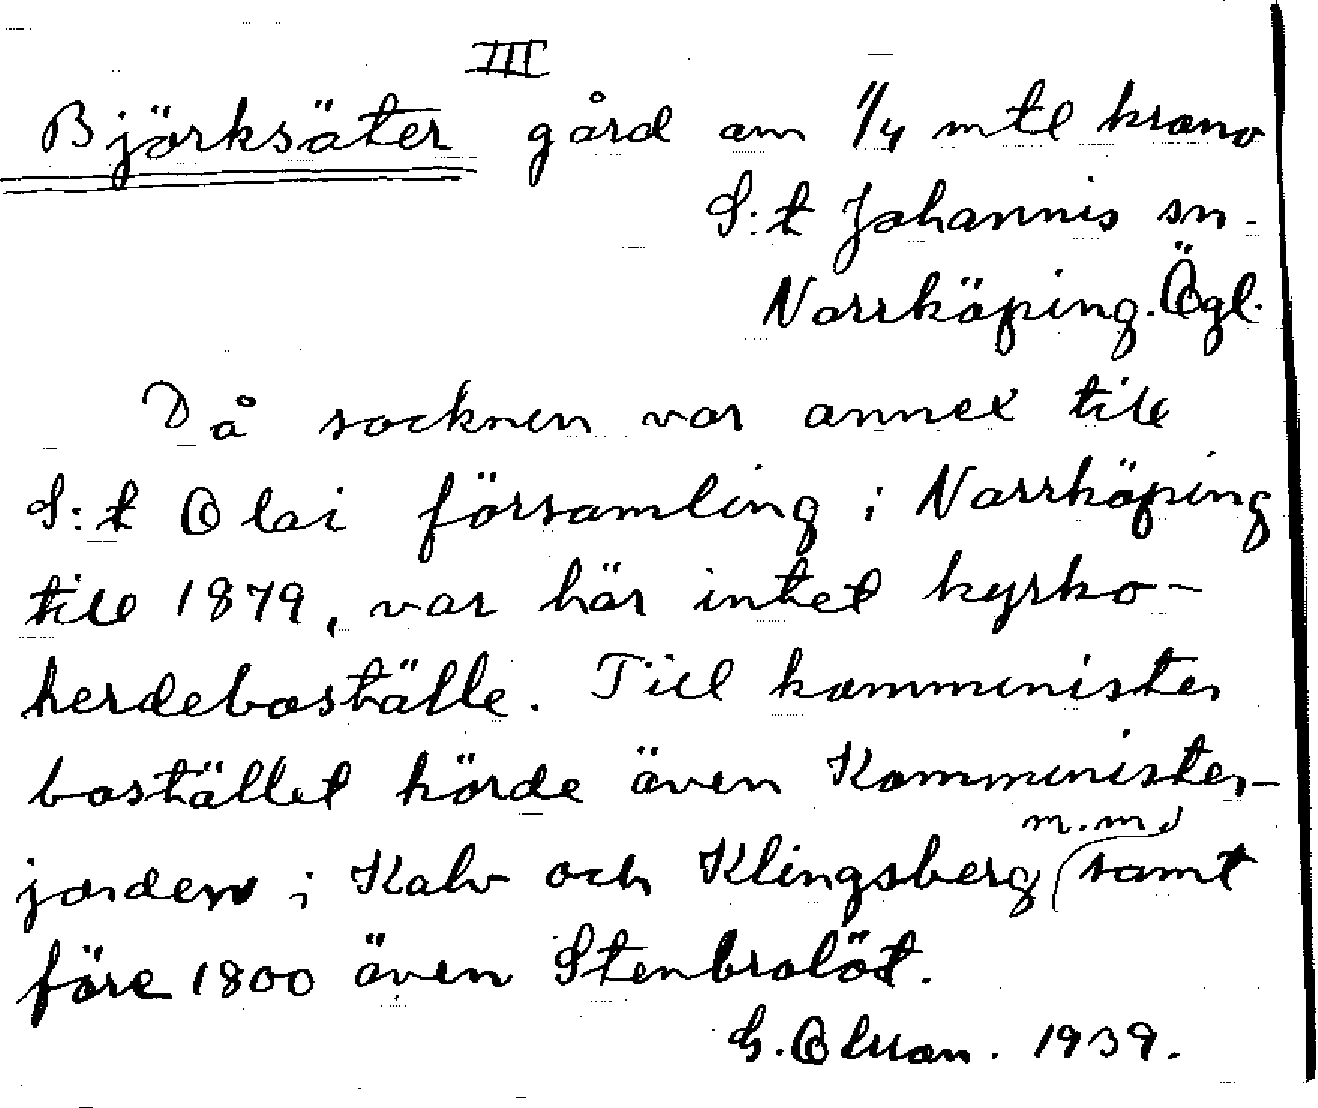 III
Björksäter gård om 1/4 mtl krono
S:t Johannis sn.
Norrköping. Ögl.
Då socknen var annex till
S:t Olai församling i Norrköping
till 1879, var här intet kyrko-
herdeboställe. Till komminister
bostället hörde även Komminister-
jorden i Kalv och Klingsberg m.m. samt
före 1800 även Stenbrolöt.
1939.